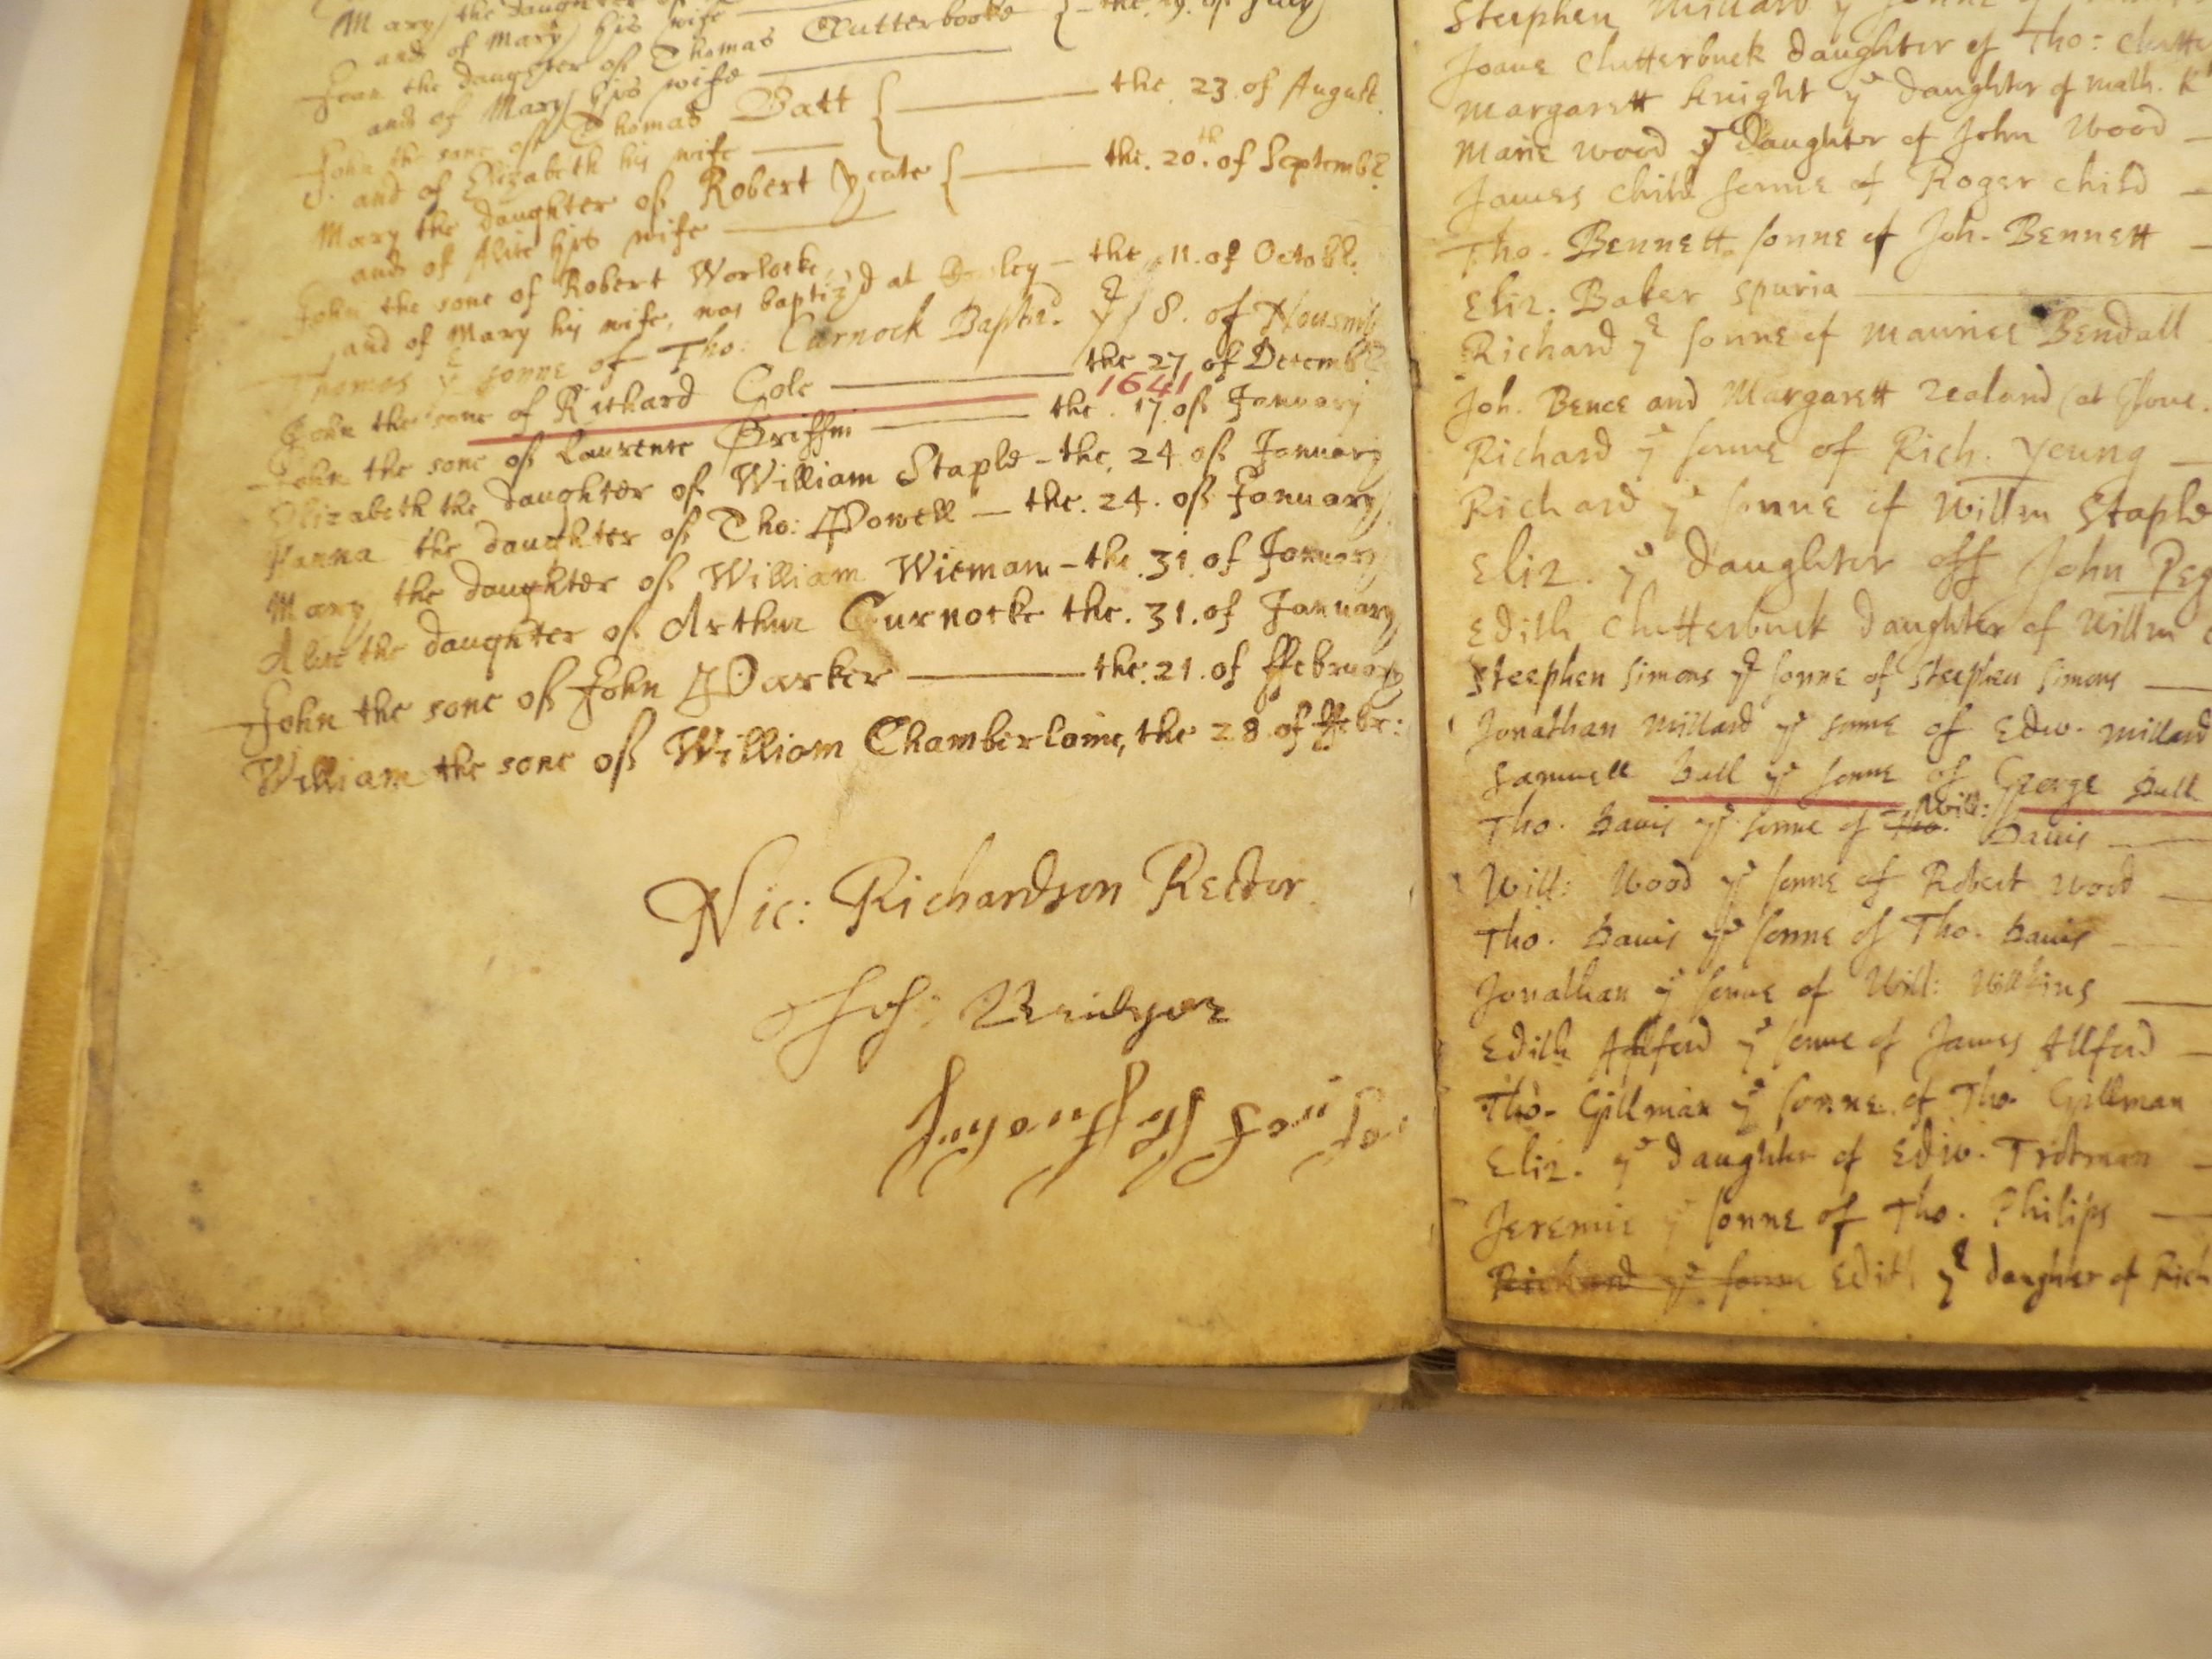 Mary the daughter of
and of Mary his wife
Jean the daughter of Thomas Clutterbooke the 19. of July
and of Mary his wife
John the sone of Thomas Batt the 23. of August.
and of Elizabeth his wife
Mary the daughter of Robert Yeate the. 20.th of Septemb
and of Alice his wife
John the sone of Robert Worlocke,
and of Mary his wife, was baptiz'd at - the 11. of Octob
Thomas ye sonne of Tho: Curnock Bapt. ye 8. of
John the sone of Richard Cole the 27 of Decemb
1641
John the sone of Laurence Griffin the. 17. of January
Elizabeth the daughter of William Staple - the. 24 of January
Hanna the daughter of Tho: Powell - the. 24. of January
Mary the daughter of William Wieman - the. 31. of January
Alice the daughter of Arthur Curnocke the. 31. of January
John the sone of John Parker the. 21. of ffebruary
William the sone of William Chamberlaine, the 28 of ffebr:
Nic: Richardson Rector.
Steephen Millard ye sonne of
Joane Clutterbuck daughter of Tho: Clutte
Margarett Knight ye daughter of Math. K
Marie Wood ye Daughter of John Wood
James Child sonne of Roger Child
Tho. Bennett sonne of Joh. Bennett
Eliz. Baker spuria
Richard ye sonne of Maurice Bendall
Joh. Bence and Margarett Zealand (at
Richard ye sonne of Rich. Young
Richard ye sonne of Willm Staple
Eliz. ye daughter off John Peg
Edith Clutterbuck daughter of Willm
Steephen Simons ye sonne of Steephen Simons
Jonathan Millard ye sonne of Edw. Millard
Samuell Bull ye sonne of George Bull
Tho. Davis ye sonne of Tho. Will: Davis
Will: Wood ye sonne of Robert Wood
Tho. Davis ye sonne of Tho. Davis
Jonathan ye sonne of Will: Wilkins
Edith Allford ye sonne of James Allford
Tho. Gillman ye sonne of Tho Gillman
Eliz. ye daughter of Edw. Trotman
Jeremie ye sonne of Tho. Philips
Richard ye sonne Edith ye daughter of Rich